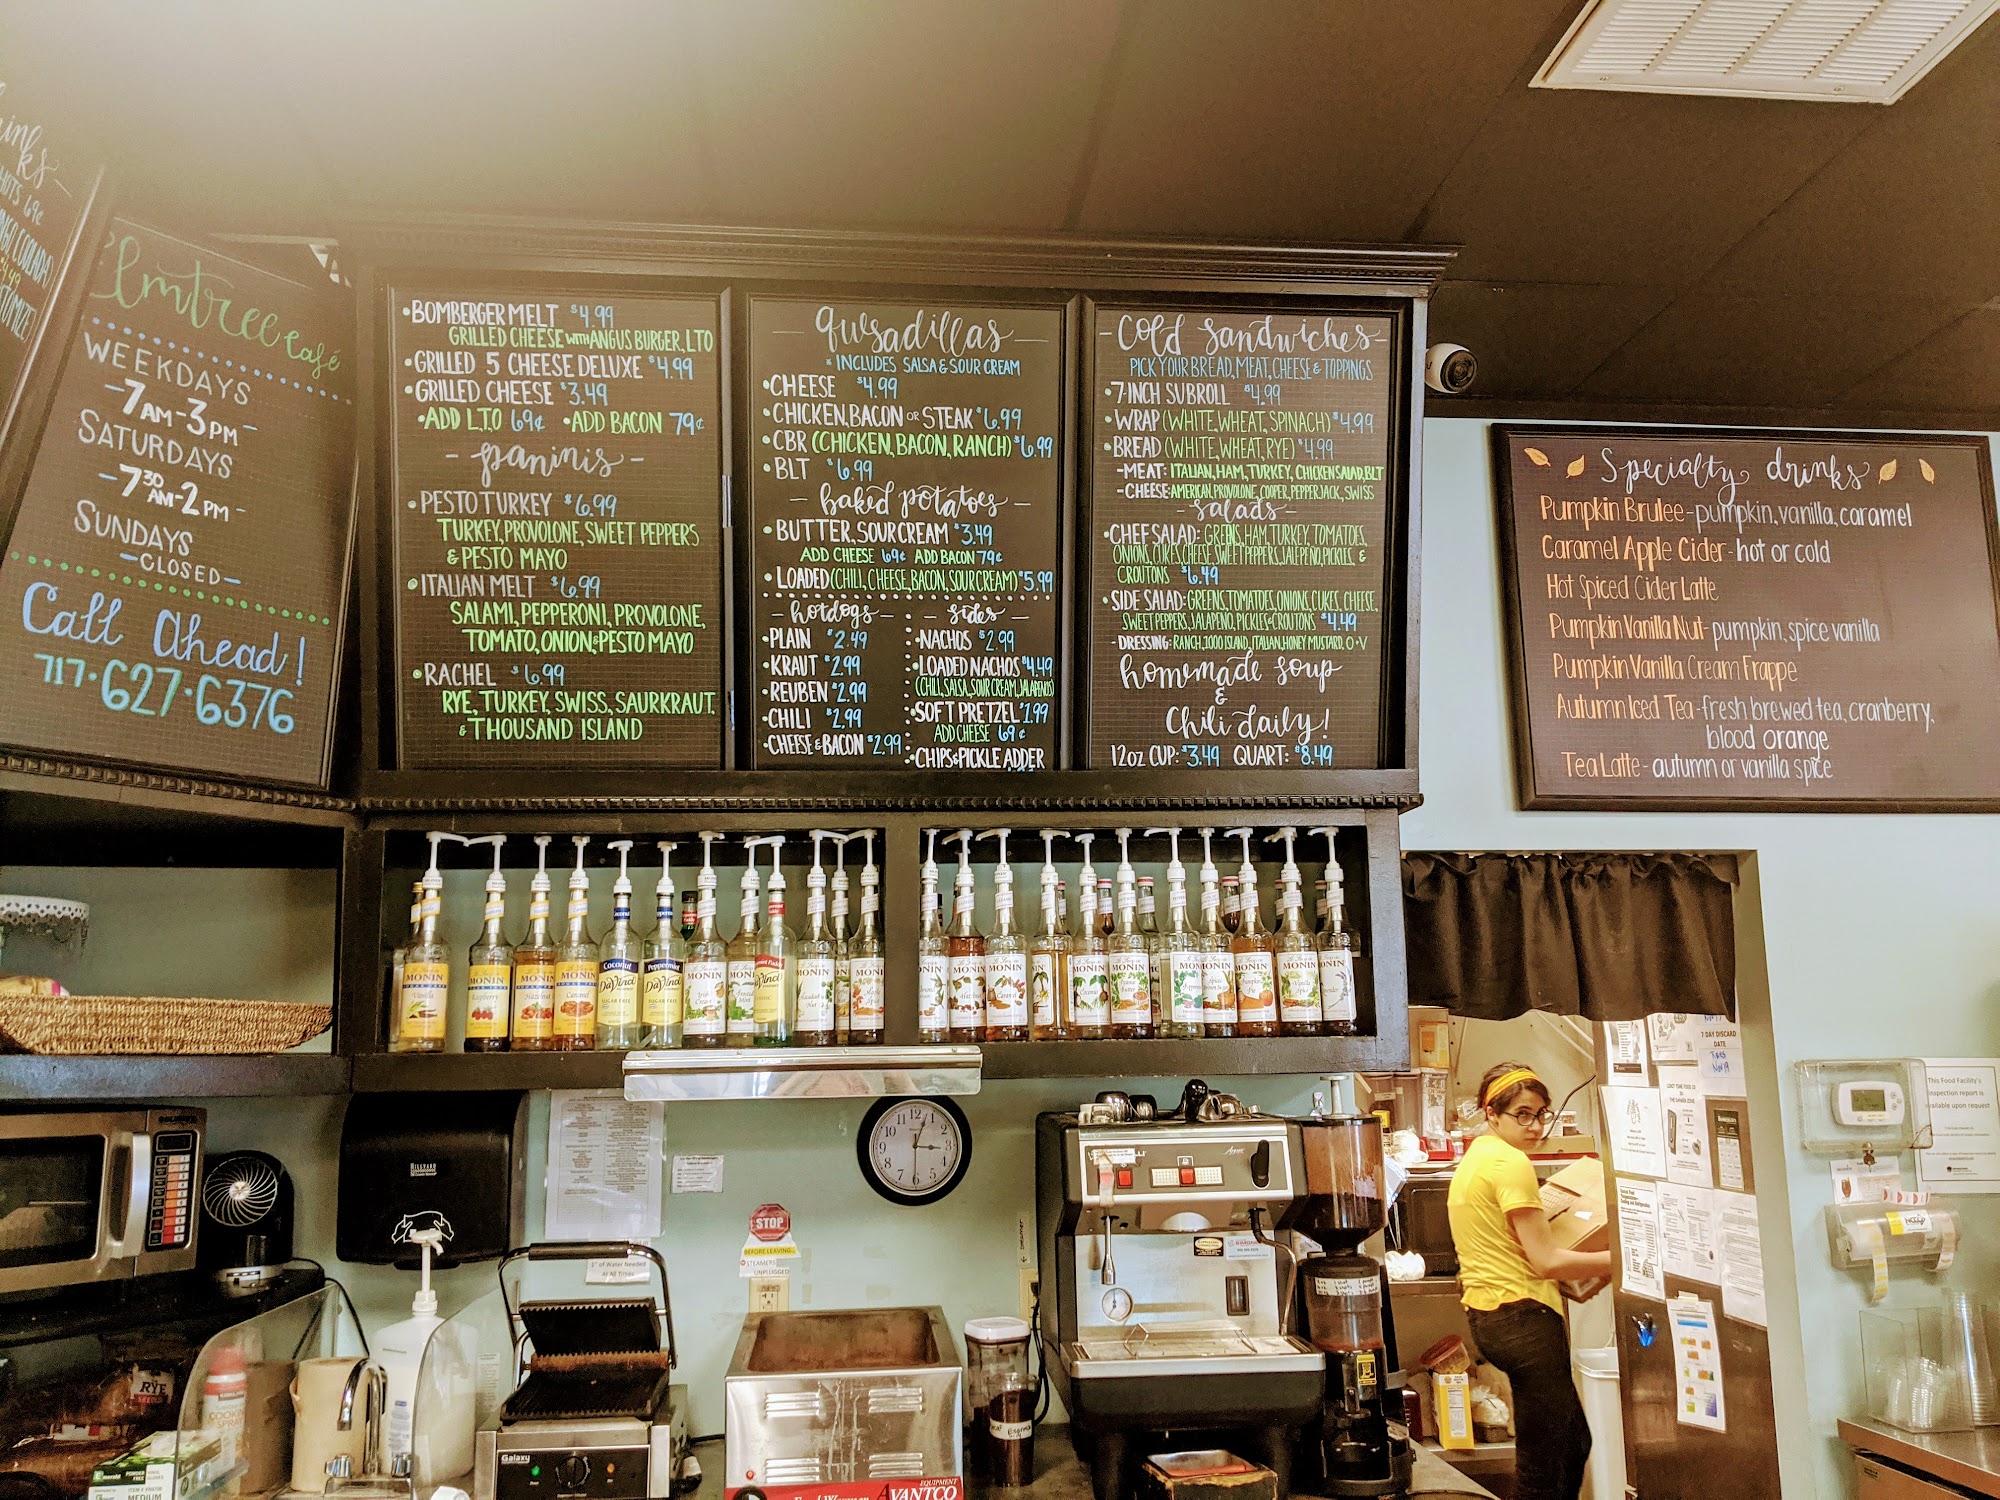 Elmtree Café
WEEKDAYS
7AM-3PM
SATURDAYS
7:30AM-2PM
SUNDAYS
-CLOSED-
Call Ahead!
717·627·6376
•BOMBERGER MELT $4.99
GRILLED CHEESE WITH ANGUS BURGER, LTO
•GRILLED 5 CHEESE DELUXE $4.99
•GRILLED CHEESE $3.49
•ADD L.T.O 69¢ •ADD BACON 79¢
-paninis-
•PESTO TURKEY $6.99
TURKEY, PROVOLONE, SWEET PEPPERS
& PESTO MAYO
•ITALIAN MELT $6.99
SALAMI, PEPPERONI, PROVOLONE,
TOMATO, ONION & PESTO MAYO
•RACHEL $6.99
RYE, TURKEY, SWISS, SAURKRAUT,
& THOUSAND ISLAND
-qusadillas-
* INCLUDES SALSA & SOUR CREAM
•CHEESE $4.99
•CHICKEN, BACON OR STEAK $6.99
•CBR (CHICKEN, BACON, RANCH) $6.99
•BLT $6.99
-baked potatoes-
•BUTTER, SOUR CREAM $3.49
ADD CHEESE 69¢ ADD BACON 79¢
•LOADED (CHILI, CHEESE, BACON, SOUR CREAM) $5.99
-hotdogs-
•PLAIN $2.49
•KRAUT $2.99
•REUBEN $2.99
•CHILI $2.99
•CHEESE & BACON $2.99
-sides-
•NACHOS $2.99
•LOADED NACHOS $4.49
(CHILI, SALSA, SOUR CREAM, JALAPENOS)
•SOFT PRETZEL $1.99
ADD CHEESE 69¢
•CHIPS & PICKLE ADDER
-Cold Sandwiches-
PICK YOUR BREAD, MEAT, CHEESE & TOPPINGS
•7-INCH SUBROLL $4.99
•WRAP (WHITE, WHEAT, SPINACH) $4.99
•BREAD (WHITE, WHEAT, RYE) $4.99
-MEAT: ITALIAN, HAM, TURKEY, CHICKEN SALAD, BLT
-CHEESE: AMERICAN, PROVOLONE, COOPER, PEPPERJACK, SWISS
-salads-
•CHEF SALAD: GREENS, HAM, TURKEY, TOMATOES,
ONIONS, CUKES, CHEESE, SWEET PEPPERS, JALEPENO, PICKLES, &
CROUTONS $6.49
•SIDE SALAD: GREENS, TOMATOES, ONIONS, CUKES, CHEESE,
SWEET PEPPERS, JALAPENO, PICKLES & CROUTONS $4.49
-DRESSING: RANCH, 1000 ISLAND, ITALIAN, HONEY MUSTARD, O+V
homemade soup
&
Chili daily!
12oz CUP: $3.49 QUART: $8.49
Specialty drinks
Pumpkin Brulee-pumpkin, vanilla, caramel
Caramel Apple Cider-hot or cold
Hot Spiced Cider Latte
Pumpkin Vanilla Nut-pumpkin, spice vanilla
Pumpkin Vanilla Cream Frappe
Autumn Iced Tea-fresh brewed tea, cranberry,
blood orange
Tea Latte-autumn or vanilla spice
MONIN
Vanilla
MONIN
Raspberry
MONIN
Hazelnut
MONIN
Caramel
Coconut
DaVinci
SUGAR FREE
Peppermint
DaVinci
SUGAR FREE
MONIN
MONIN
DaVinci
MONIN
MONIN
MONIN
MONIN
MONIN
MONIN
MONIN
MONIN
MONIN
MONIN
MONIN
MONIN
7 DAY DISCARD
DATE
This Food Facility's
inspection report is
available upon request
STOP
BEFORE LEAVING...
STEAMERS
UNPLUGGED
1" of Water Needed
At All Times
12 1 2 3 4 5 6 7 8 9 10 11
Galaxy
RYE
EQUIPMENT
AVANTCO
MEDIUM